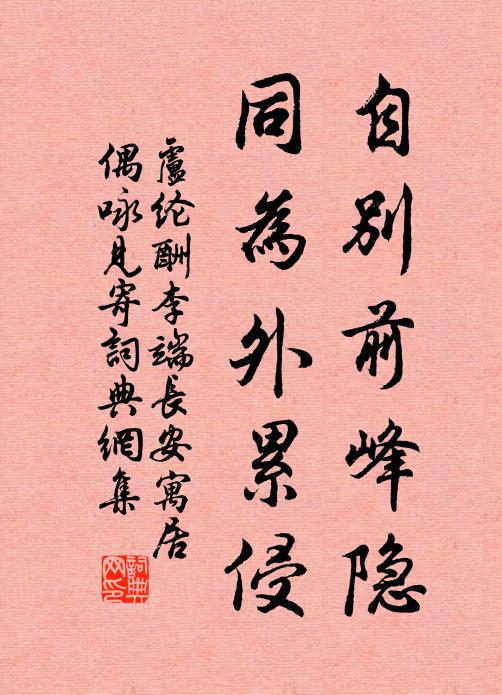 自别前峰隐
同為外累侵
盧纶酬李端長安寓居
偶咏見寄詞典網集
詞典网印